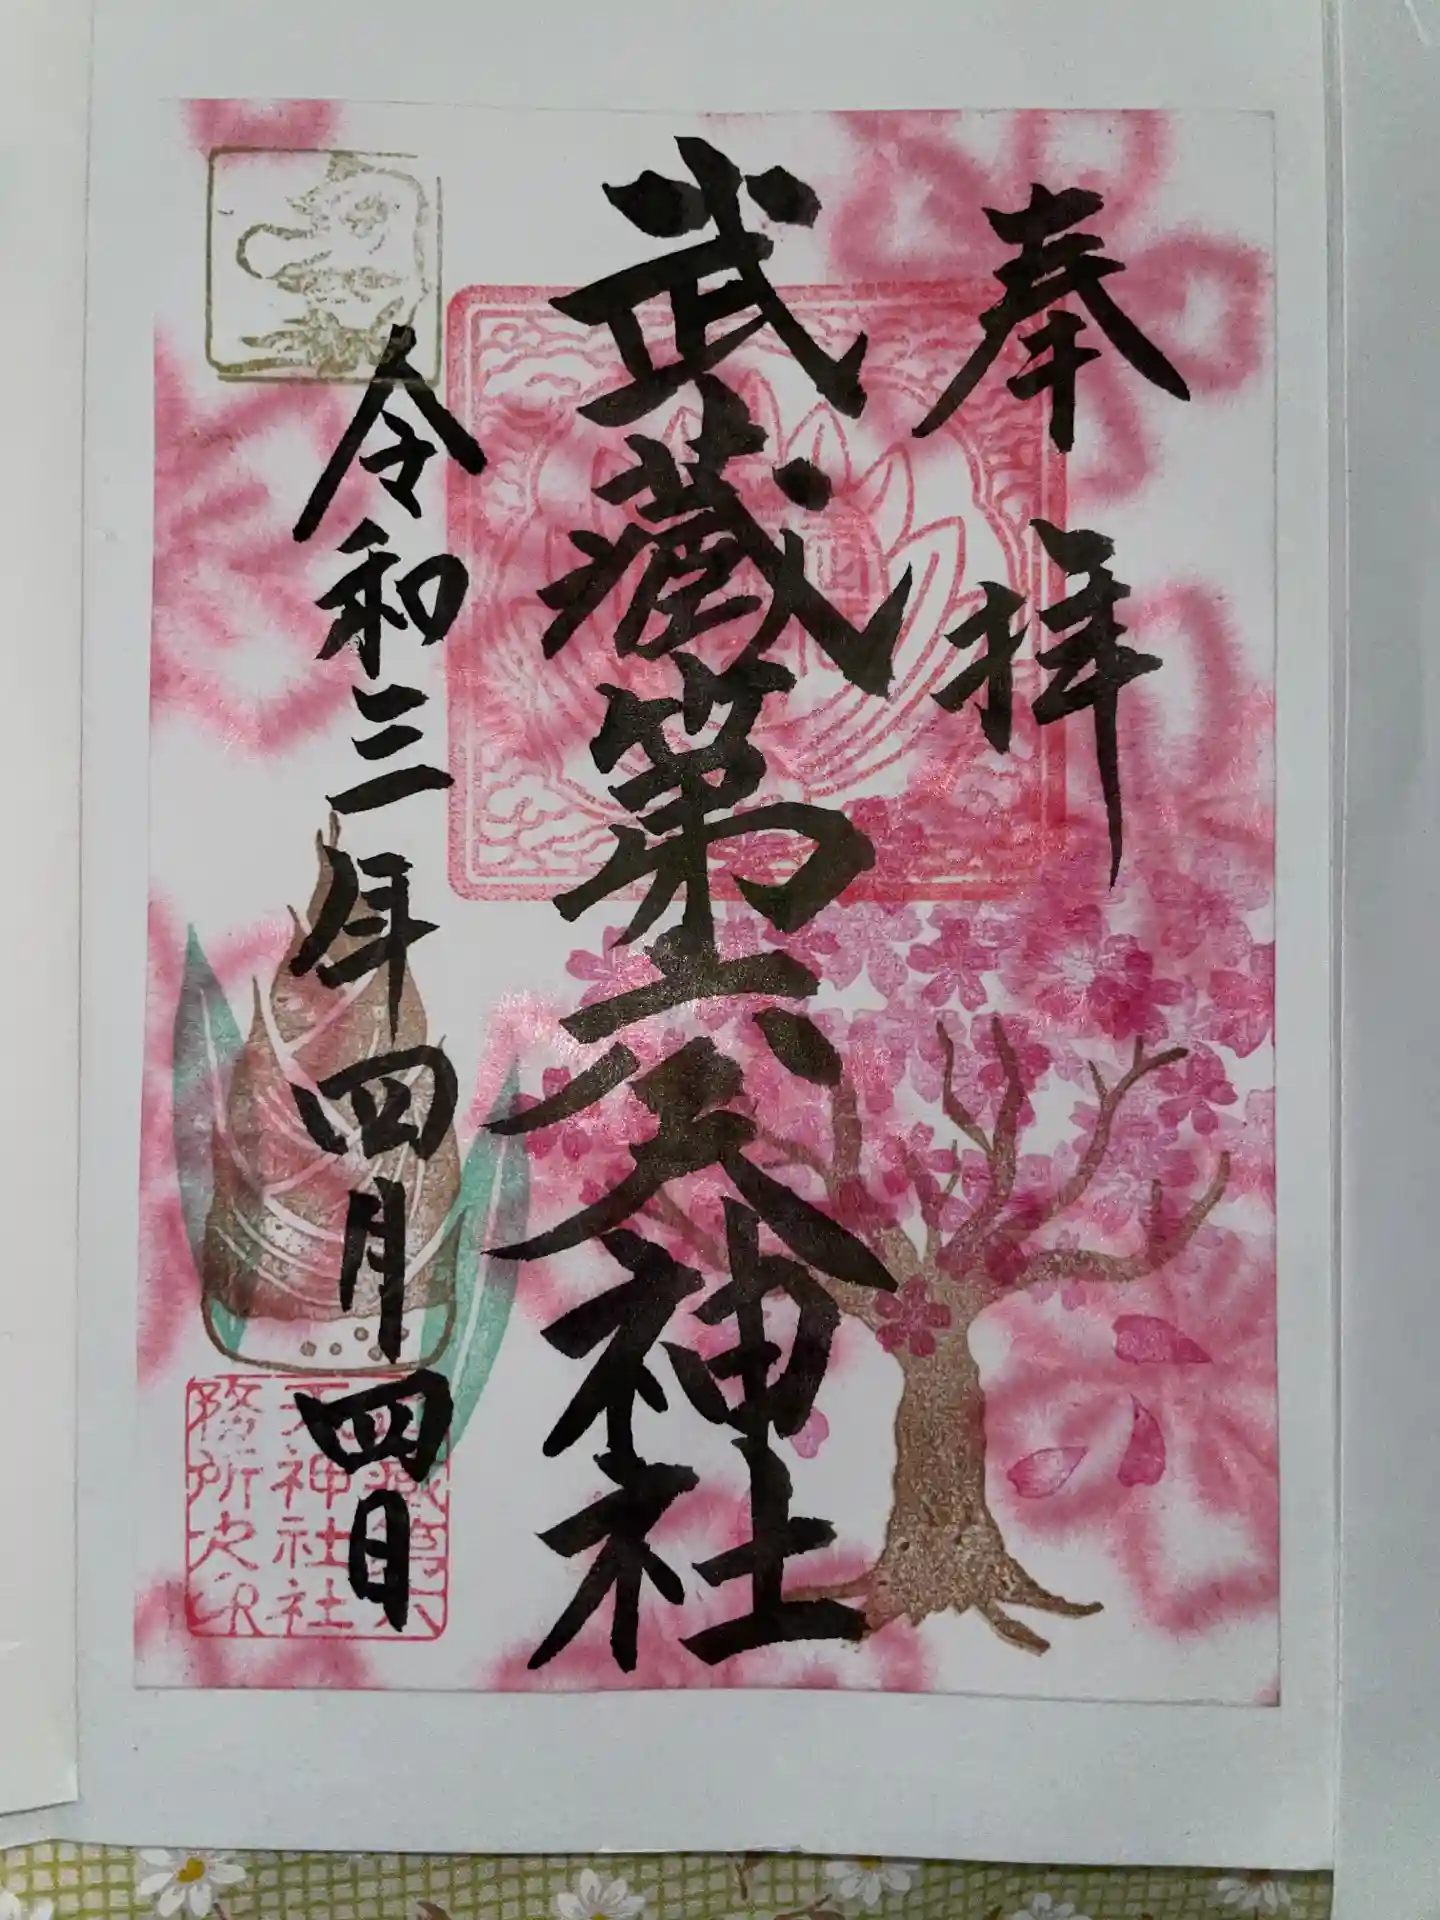 奉拝
武蔵第六天神社
令和三年四月四日
天神社社
務所之印